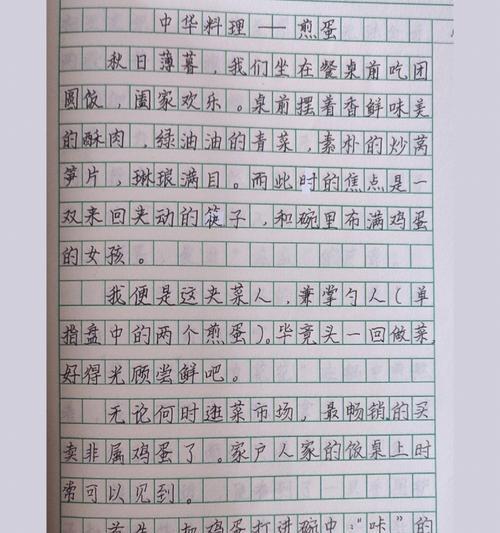 中华料理——煎蛋
秋日薄暮，我们坐在餐桌前吃团
圆饭，阖家欢乐。桌前摆着香鲜味美
的酥肉，绿油油的青菜，素朴的炒莴
笋片，琳琅满目。而此时的焦点是一
双来回夹动的筷子，和碗里布满鸡蛋
的女孩。
我便是这夹菜人，兼掌勺人（单
指盘中的两个煎蛋）。毕竟头一回做菜，
好得光顾尝鲜吧。
无论何时逛菜市场，最畅销的买
卖非属鸡蛋了。家户人家的饭桌上时
常可以见到。
首先，把鸡蛋打进碗中，“咔”的